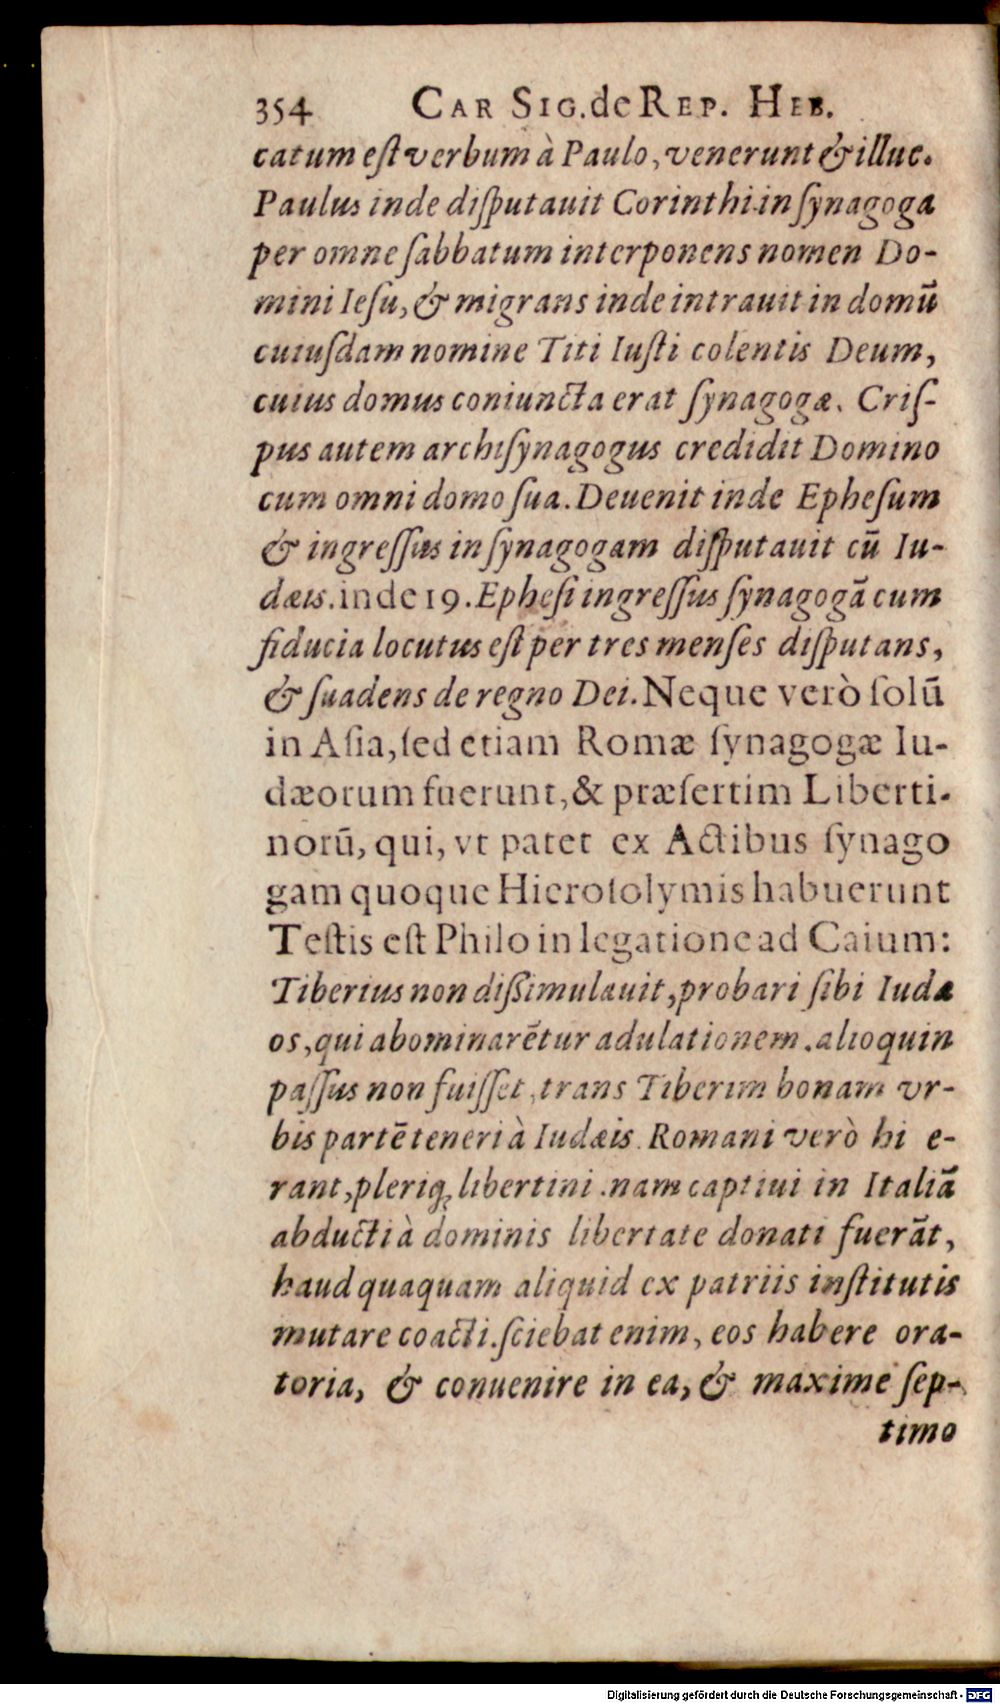 354 CAR SIG. de REP. HEB.
catum eſt verbum à Paulo, venerunt & illuc.
Paulus inde diſputauit Corinthi in ſynagoga
per omne ſabbatum interponens nomen Do-
mini Ieſu, & migrans inde intrauit in domũ
cuiuſdam nomine Titi Iuſti colentis Deum,
cuius domus coniuncta erat ſynagogæ. Criſ-
pus autem archiſynagogus credidit Domino
cum omni domo ſua. Deuenit inde Epheſum
& ingreſſus in ſynagogam diſputauit cũ Iu-
dæis. inde 19. Epheſi ingreſſus ſynagogã cum
fiducia locutus eſt per tres menſes diſputans,
& ſuadens de regno Dei. Neque verò ſolũ
in Aſia, ſed etiam Romæ ſynagogæ Iu-
dæorum fuerunt, & præſertim Liberti-
norũ, qui, vt patet ex Actibus ſynago
gam quoque Hieroſolymis habuerunt
Teſtis eſt Philo in legatione ad Caium:
Tiberius non diſſimulauit, probari ſibi Iudæ
os, qui abominarẽtur adulationem. alioquin
paſſus non fuiſſet, trans Tiberim bonam vr-
bis partẽ teneri à Iudæis. Romani verò hi e-
rant, pleriq; libertini. nam captiui in Italiã
abducti à dominis libertate donati fuerãt,
haud quaquam aliquid ex patriis inſtitutis
mutare coacti. ſciebat enim, eos habere ora-
toria, & conuenire in ea, & maxime ſep-
timo
Digitalisierung gefördert durch die Deutsche Forschungsgemeinschaft - DFG